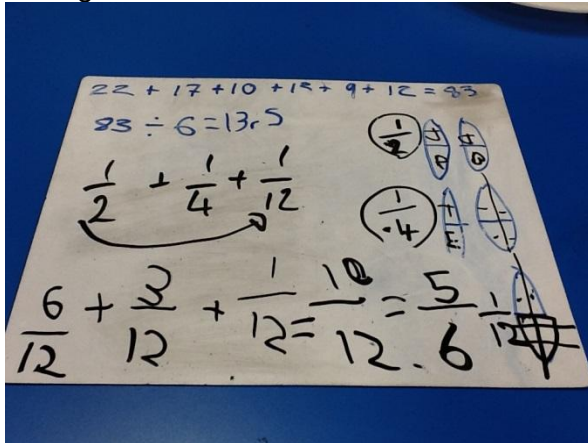 22 + 17 + 10 + 15 + 9 + 12 = 83
83 ÷ 6 = 13r5
1/2 + 1/4 + 1/12
1/2
1/4
6/12 + 3/12 + 1/12 = 10/12 = 5/6
1/12